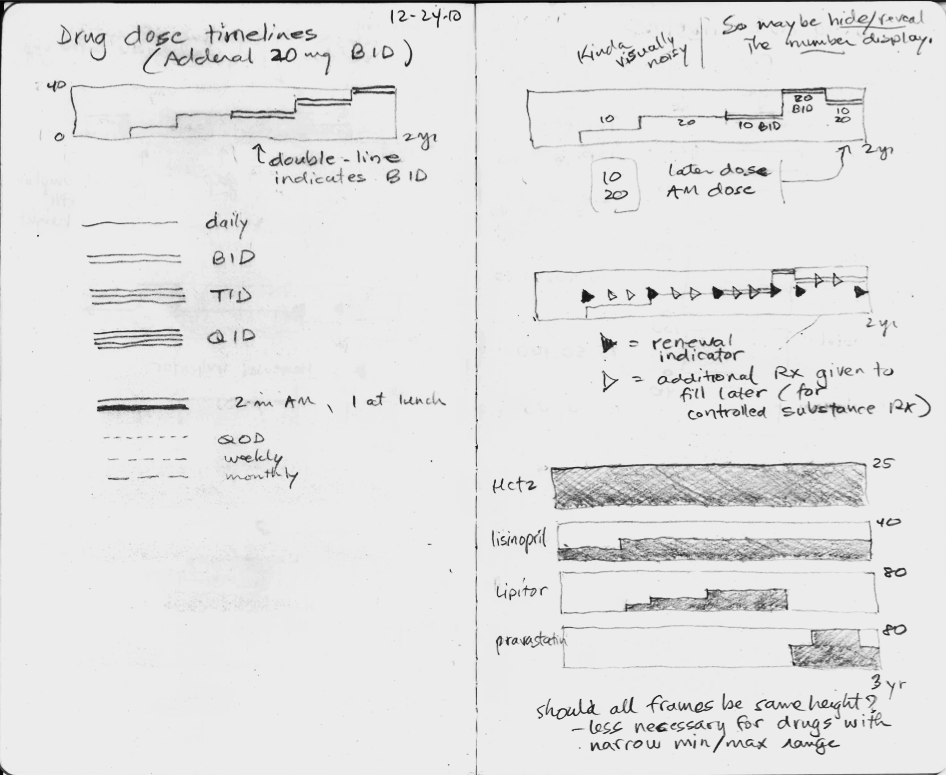 12-24-10
Drug dose timelines
(Adderal 20 mg BID)
40
0
2 yr
double-line
indicates BID
daily
BID
TID
QID
2 in AM, 1 at lunch
QOD
weekly
monthly
Kinda
visually
noisy
So maybe hide/reveal
the number display.
10
20
10 BID
20
BID
10
20
2 yr
10 later dose
20 AM dose
2 yr
= renewal
indicator
= additional Rx given to
fill later (for
controlled substance Rx)
Hctz
25
lisinopril
40
Lipitor
80
pravastatin
80
3 yr
should all frames be same height?
- less necessary for drugs with
narrow min/max range